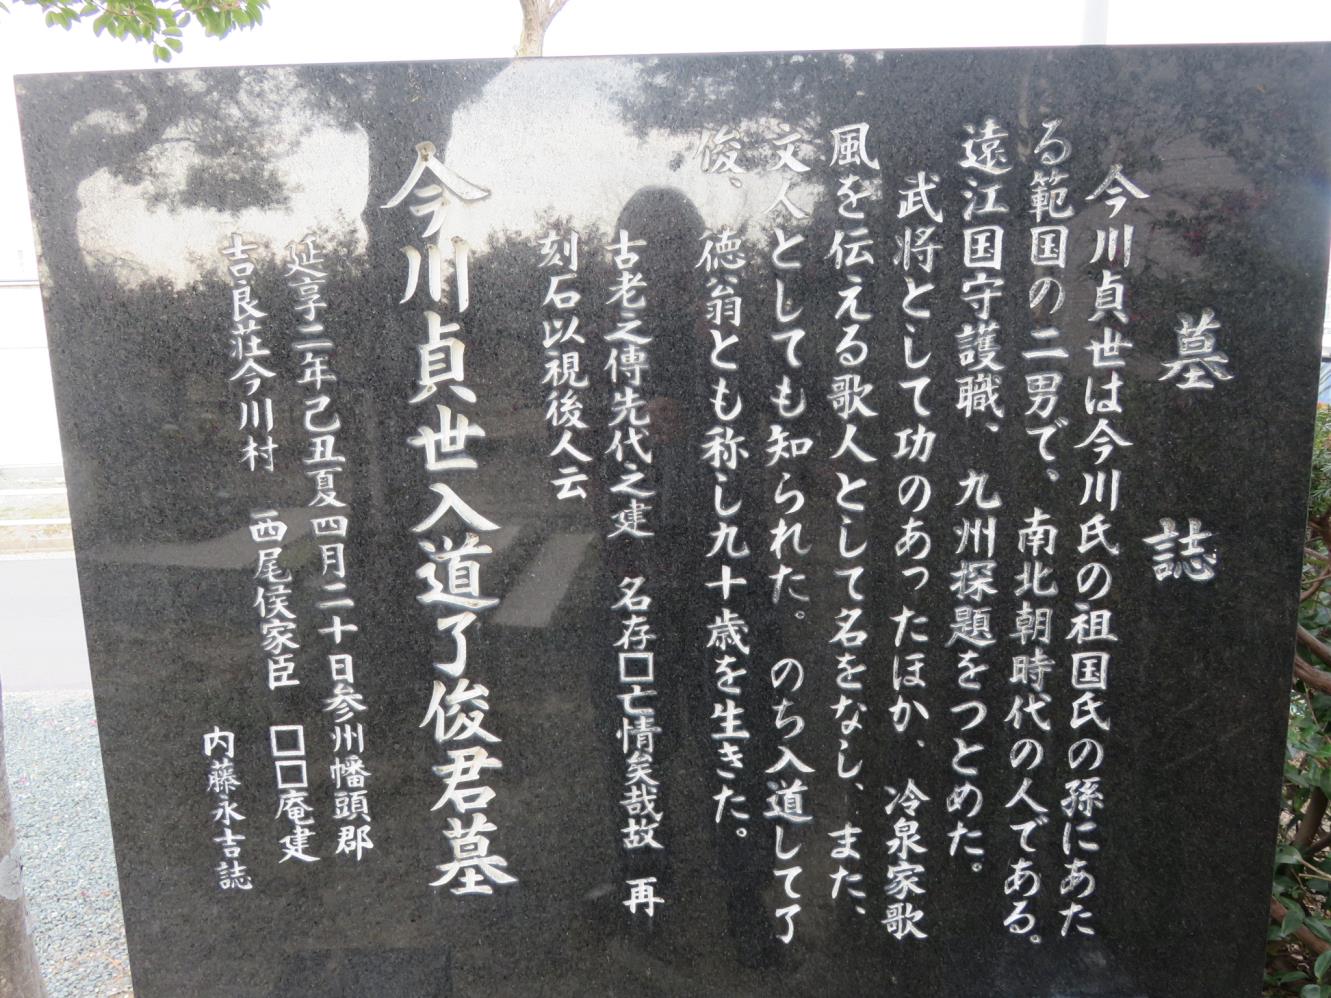 墓誌
今川貞世は今川氏の祖国氏の孫にあた
る範国の二男で、南北朝時代の人である。
遠江国守護職、九州探題をつとめた。
武将として功のあったほか、冷泉家歌
風を伝える歌人として名をなし、また、
文人としても知られた。のち入道して了
俊、徳翁とも称し九十歳を生きた。
古老之傳先代之建 名存□亡情矣哉故 再
刻石以視後人云
今川貞世入道了俊君墓
延享二年己丑夏四月二十日参州幡頭郡
吉良荘今川村 西尾侯家臣 □□庵建
内藤永吉誌